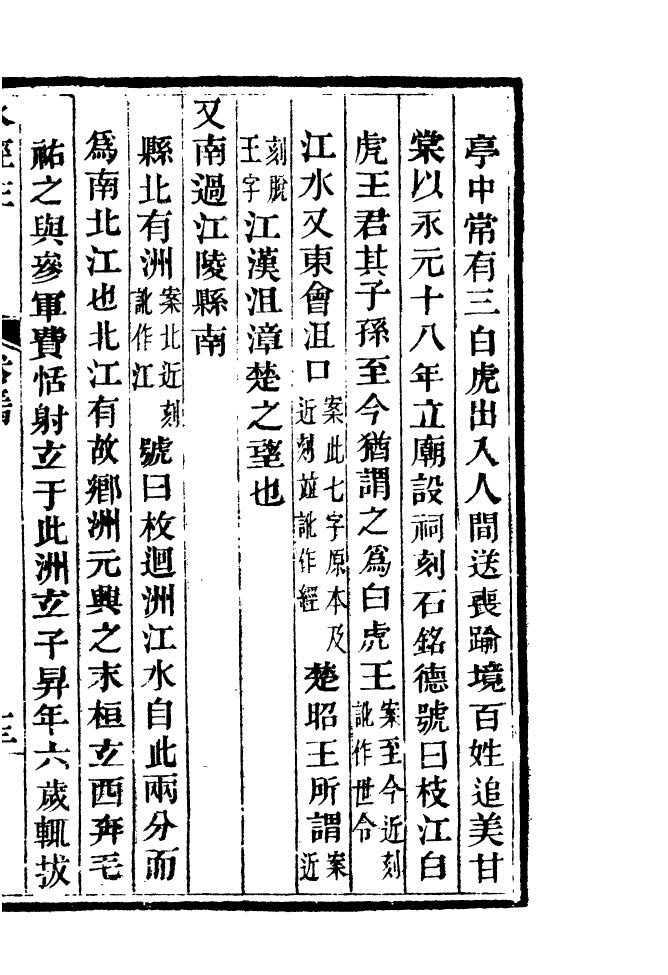 亭中常有三白虎出入人間送喪踰境百姓追美甘
棠以永元十八年立廟設祠刻石銘德號曰枝江白
虎王君其子孫至今猶謂之爲白虎王案至今近刻訛作世令
江水又東會沮口案此七字原本及近刻竝訛作經楚昭王所謂案近
刻脫王字江漢沮漳楚之望也
又南過江陵縣南
縣北有洲案北近刻訛作江號曰枚迴洲江水自此兩分而
爲南北江也北江有故鄉洲元興之末桓玄西奔毛
祐之與參軍費恬射玄于此洲玄子昇年六歲輒拔